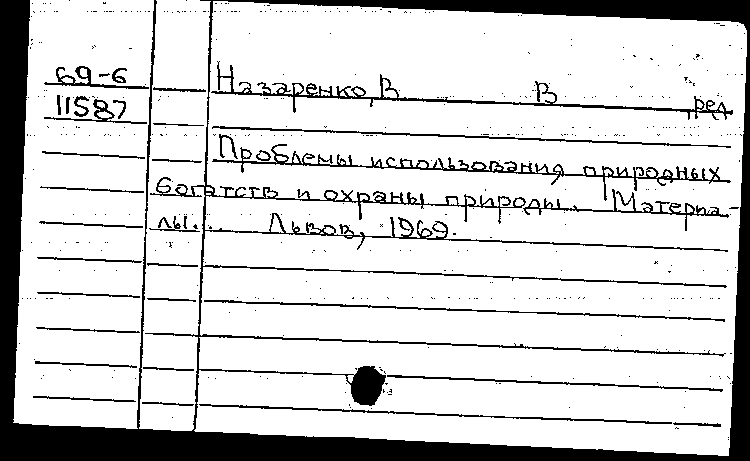 69-6
11587
Назаренко, В В , ред
Проблемы использования природных
богатств и охраны природы. Материа-
лы... Львов, 1969.